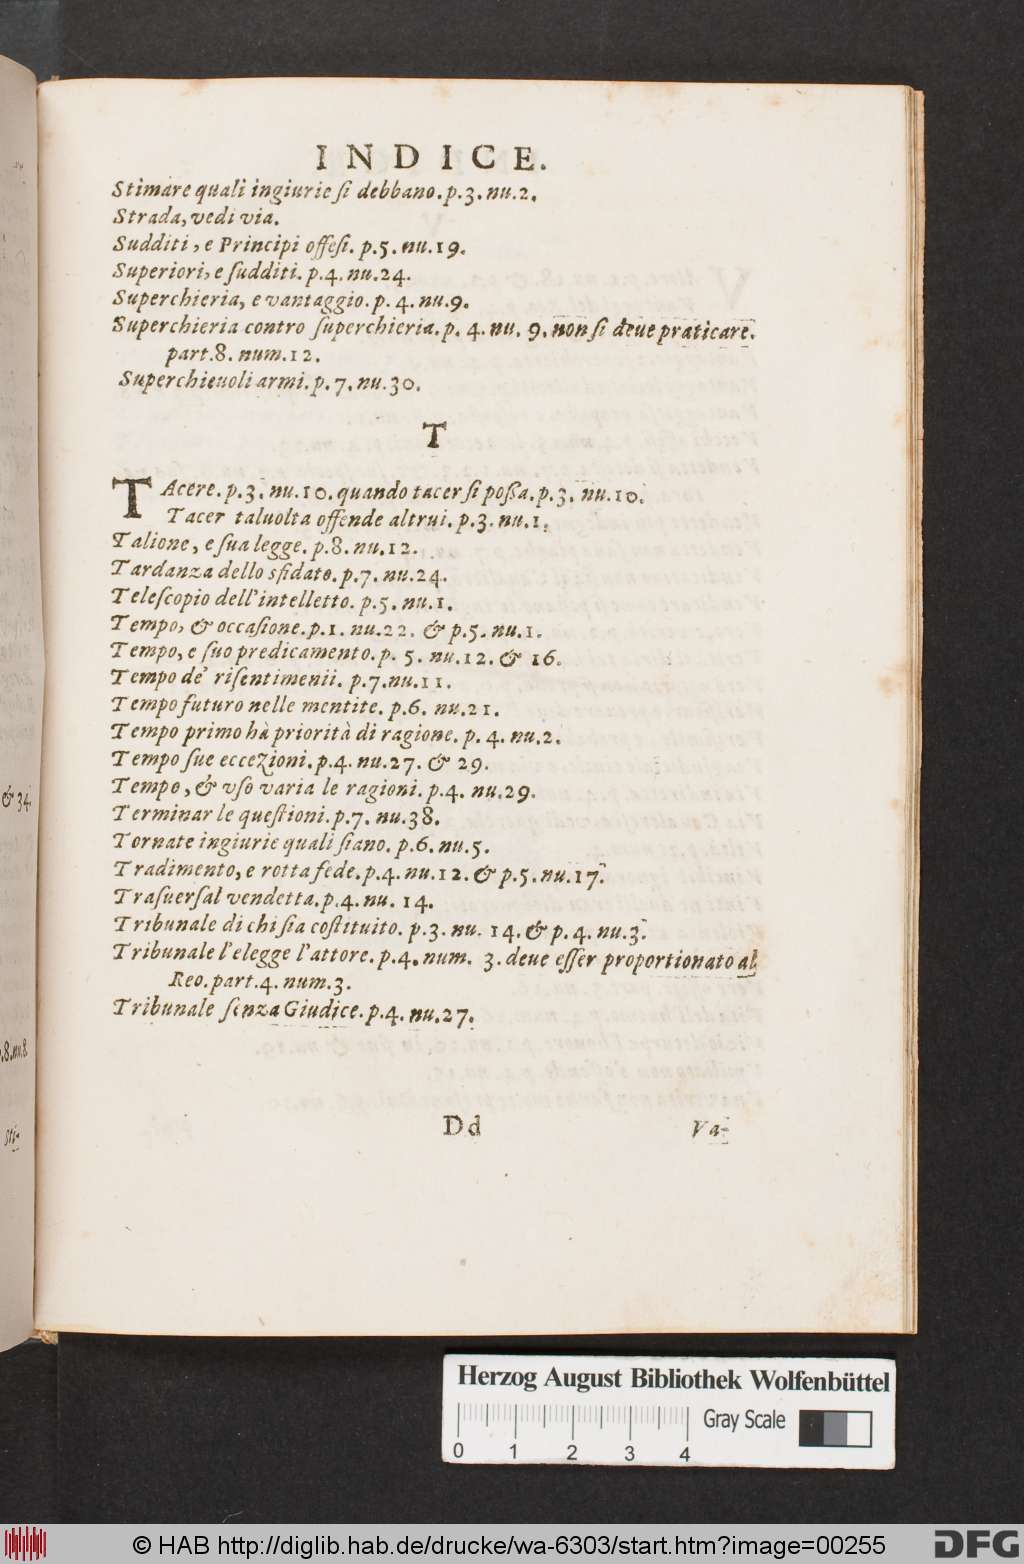 INDICE.
Stimare quali ingiurie ſi debbano.p.3.nu.2.
Strada,vedi via.
Sudditi, e Principi offeſi. p.5.nu.19.
Superiori,e ſudditi. p.4.nu.24.
Superchieria, e vantaggio.p.4.nu.9.
Superchieria contro ſuperchieria.p. 4. nu. 9.non ſi deue praticare.
part.8. num.12.
Superchieuoli armi.p.7.nu.30.
T
TAcere.p.3.nu.10.quando tacer ſi poſſa.p.3. nu.10.
Tacer taluolta offende altrui.p.3.nu.1.
Talione, e ſua legge. p.8.nu.12.
Tardanza dello sfidato.p.7.nu.24.
Teleſcopio dell'intelletto. p.5.nu.1.
Tempo, & occaſione.p.1. nu.22. & p.5.nu.1.
Tempo,e ſuo predicamento.p. 5. nu.12.& 16.
Tempo de' riſentimenii. p.7.nu.11.
Tempo futuro nelle mentite. p.6. nu.21.
Tempo primo hà priorità di ragione. p. 4. nu.2.
Tempo ſue eccezioni.p.4. nu.27. & 29.
Tempo, & vſo varia le ragioni. p.4. nu.29.
Terminar le queſtioni.p.7. nu.38.
Tornate ingiurie quali ſiano. p.6.nu.5.
Tradimento,e rotta fede.p.4.nu.12.& p.5.nu.17.
Traſuerſal vendetta.p.4.nu. 14.
Tribunale di chi ſia coſtituito. p.3. nu. 14.& p.4. nu.3.
Tribunale l'elegge l'attore.p.4.num. 3.deue eſſer proportionato al
Reo.part.4. num.3.
Tribunale ſenza Giudice.p.4. nu.27.
Dd Va-
& 34
.8.nu.8
Sti-
Herzog August Bibliothek Wolfenbüttel
Gray Scale
0 1 2 3 4
© HAB http://diglib.hab.de/drucke/wa-6303/start.htm?image=00255
DFG